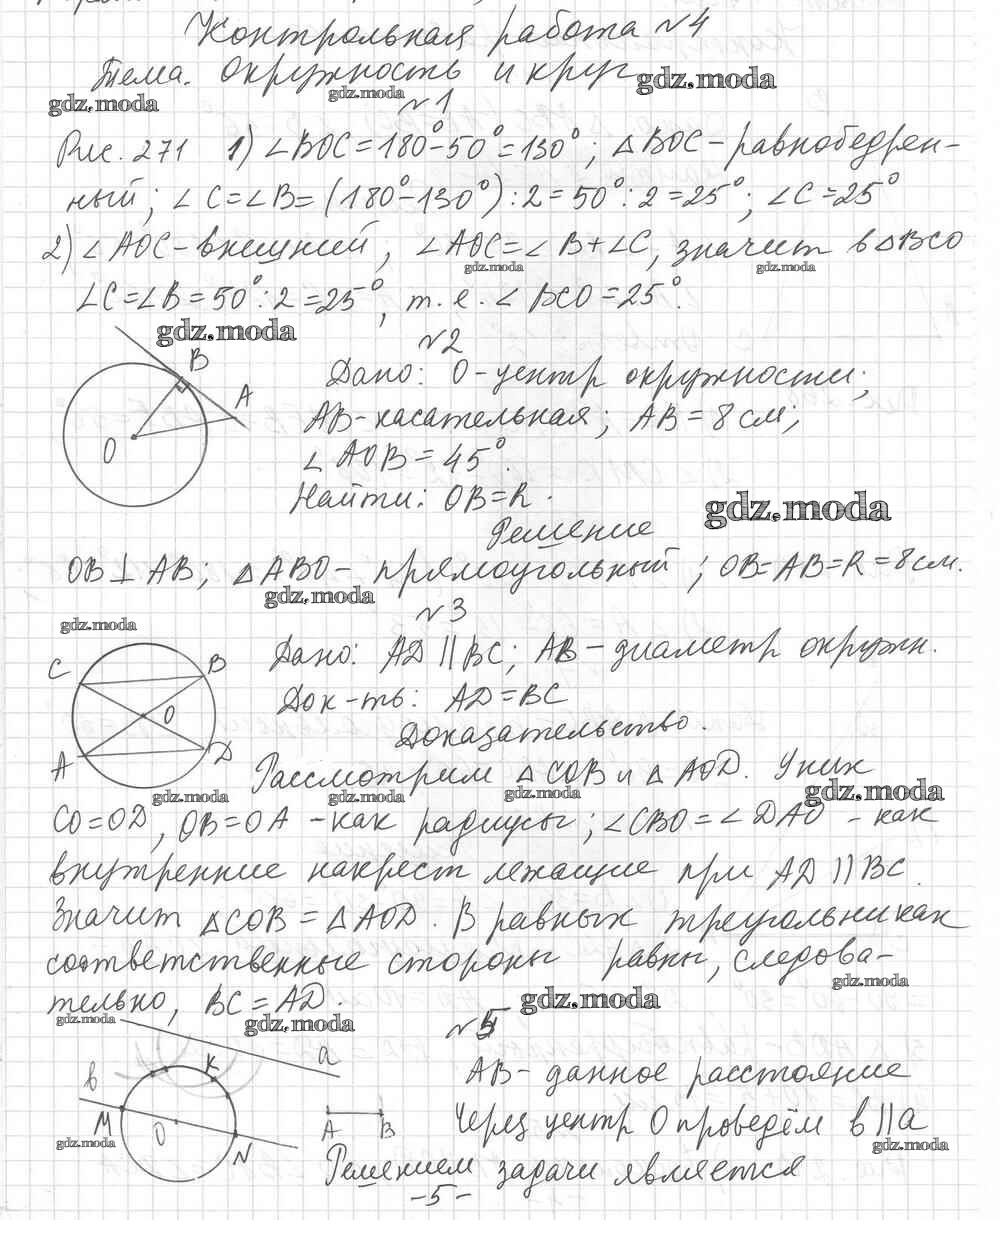 Контрольная работа №4
Тема. Окружность и круг
gdz.moda
gdz.moda
gdz.moda
№1
Рис. 271 1) ∠BOC=180°-50°=130°; △BOC-равнобедрен-
ный; ∠C=∠B=(180°-130°):2=50°:2=25°; ∠C=25°
2) ∠AOC-внешний; ∠AOC=∠B+∠C, значит в △BCO
gdz.moda
gdz.moda
∠C=∠B=50°:2=25°, т.е. ∠BCO=25°.
gdz.moda
№2
B
A
O
Дано: O-центр окружности;
AB-касательная; AB=8см;
∠AOB=45°.
Найти: OB=R.
gdz.moda
Решение
OB⊥AB; △ABO- прямоугольный; OB=AB=R=8см.
gdz.moda
№3
gdz.moda
C
B
O
A
D
Дано: AD||BC; AB-диаметр окружн.
Док-ть: AD=BC
Доказательство.
Рассмотрим △COB и △AOD. У них
gdz.moda
gdz.moda
gdz.moda
gdz.moda
CO=OD, OB=OA -как радиусы; ∠CBO=∠DAO -как
внутренние накрест лежащие при AD||BC.
Значит △COB=△AOD. В равных треугольниках
соответственные стороны равны, следова-
gdz.moda
тельно, BC=AD.
gdz.moda
gdz.moda
gdz.moda
№5
a
K
в
M
O
N
A
B
AB- данное расстояние
Через центр O проведём в||a
gdz.moda
gdz.moda
Решением задачи является
-5-